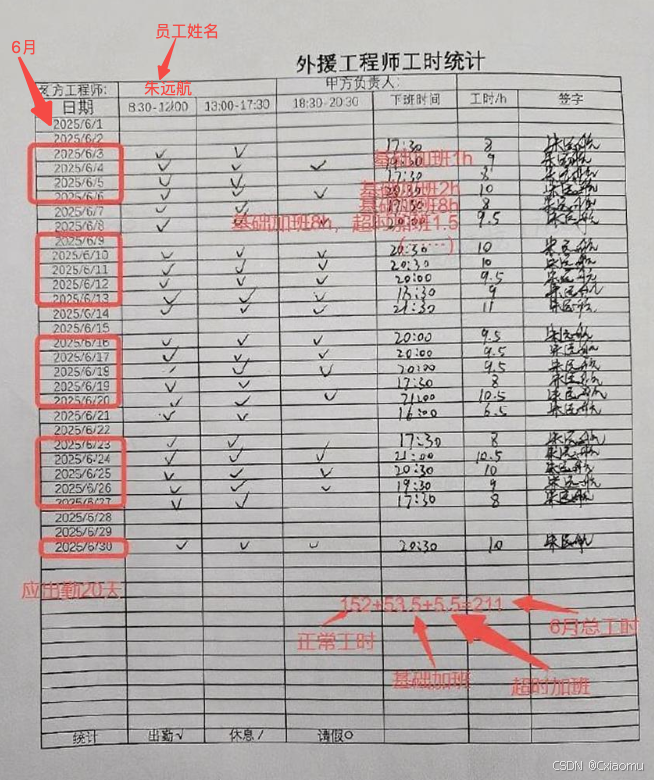 员工姓名
6月
外援工程师工时统计
方工程师: 朱远航 甲方负责人:
日期 8:30-12:00 13:00-17:30 18:30-20:30 下班时间 工时/h 签字
2025/6/1
2025/6/2
2025/6/3 ✓ ✓ 17:30 8 朱远航
基础加班1h
2025/6/4 ✓ ✓ ✓ 9 朱远航
2025/6/5 ✓ ✓ 17:30 8 朱远航
基础加班2h
2025/6/6 ✓ ✓ ✓ 20:30 10 朱远航
基础加班8h
2025/6/7 ✓ ✓ 17:30 8 朱远航
基础加班8h,超时加班1.5
2025/6/8 ✓ ✓ ✓ 20:00 9.5 朱远航
(……)
2025/6/9
2025/6/10 ✓ ✓ ✓ 20:30 10 朱远航
2025/6/11 ✓ ✓ ✓ 20:30 10 朱远航
2025/6/12 ✓ ✓ ✓ 20:00 9.5 朱远航
2025/6/13 ✓ ✓ ✓ 9 朱远航
2025/6/14 ✓ ✓ ✓ 21:30 11 朱远航
2025/6/15
2025/6/16 ✓ ✓ ✓ 20:00 9.5 朱远航
2025/6/17 ✓ ✓ ✓ 20:00 9.5 朱远航
2025/6/18 ✓ ✓ ✓ 20:00 9.5 朱远航
2025/6/19 ✓ ✓ 17:30 8 朱远航
2025/6/20 ✓ ✓ ✓ 21:00 10.5 朱远航
2025/6/21 ✓ ✓ 16:00 6.5 朱远航
2025/6/22
2025/6/23 ✓ ✓ 17:30 8 朱远航
2025/6/24 ✓ ✓ ✓ 21:00 10.5 朱远航
2025/6/25 ✓ ✓ ✓ 20:30 10 朱远航
2025/6/26 ✓ ✓ ✓ 19:30 9 朱远航
2025/6/27 ✓ ✓ 17:30 8 朱远航
2025/6/28
2025/6/29
2025/6/30 ✓ ✓ ✓ 20:30 10 朱远航
应出勤20天
152+53.5+5.5=211
正常工时 6月总工时
基础加班 超时加班
统计 出勤√ 休息/ 请假○
CSDN @Cxiaomu